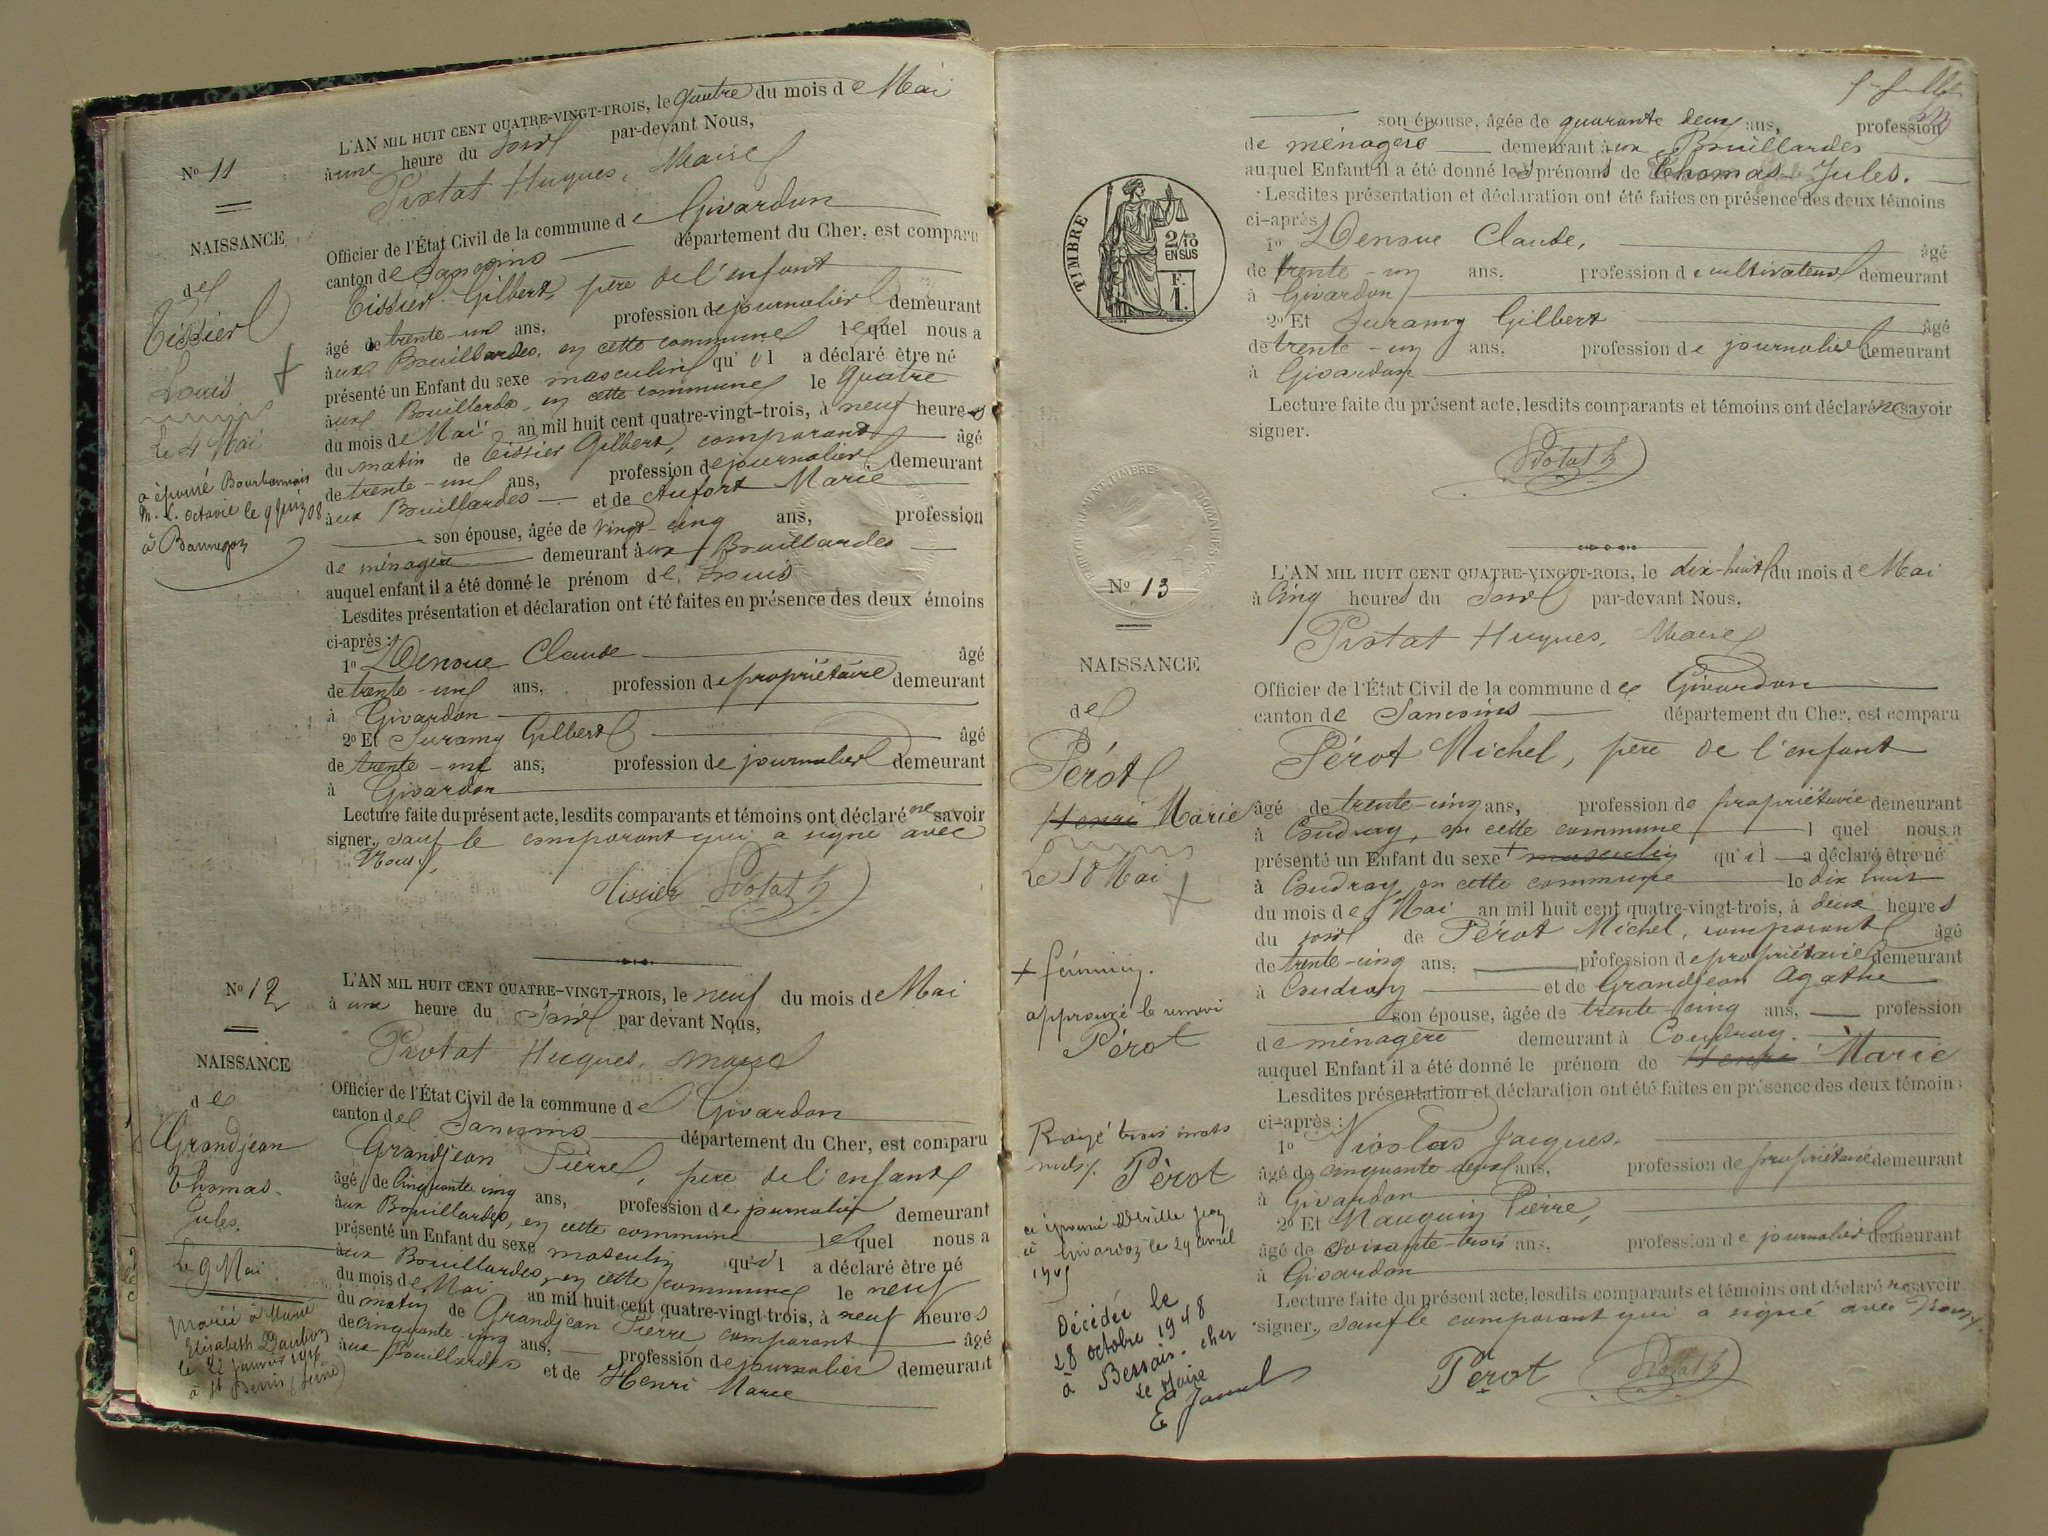 L'AN MIL HUIT CENT QUATRE-VINGT-TROIS, le quatre du mois de Mai
à une heure du soir par-devant Nous,
Protat Hugues, Maire
Officier de l'État Civil de la commune de Givardon
canton de Sancoins département du Cher, est comparu
Tissier Gilbert, père de l'enfant
âgé de trente-un ans, profession de journalier demeurant
aux Bouillardes, en cette commune lequel nous a
présenté un Enfant du sexe masculin qu'il a déclaré être né
aux Bouillardes, en cette commune le quatre
du mois de Mai an mil huit cent quatre-vingt-trois, à neuf heures
du matin de Tissier Gilbert, comparant âgé
de trente-un ans, profession de journalier demeurant
aux Bouillardes et de Aufort Marie
son épouse, âgée de vingt-cinq ans, profession
de ménagère demeurant aux Bouillardes
auquel enfant il a été donné le prénom de Louis
Lesdites présentation et déclaration ont été faites en présence des deux émoins
ci-après :
1º Denoue Claude âgé
de trente-un ans, profession de propriétaire demeurant
à Givardon
2º Et Suramy Gilbert âgé
de trente-un ans, profession de journalier demeurant
à Givardon
Lecture faite du présent acte, lesdits comparants et témoins ont déclaré ne savoir
signer, sauf le comparant qui a signé avec
Nous,
Tissier Protat h
Nº 11
NAISSANCE
de
Tissier
Louis
Le 4 Mai
a épousé Bourbonnais
M. L. Octavie le 9 juin 08
à Bannegon
Nº 12
NAISSANCE
de
Grandjean
Thomas-
Jules.
Le 9 Mai
Marié à Marie
Elisabeth
le 22 janvier 1916
à St Denis (Seine)
L'AN MIL HUIT CENT QUATRE-VINGT-TROIS, le neuf du mois de Mai
à une heure du soir par devant Nous,
Protat Hugues, maire
Officier de l'État Civil de la commune de Givardon
canton de Sancoins département du Cher, est comparu
Grandjean Pierre, père de l'enfant
âgé de cinquante cinq ans, profession de journalier demeurant
aux Bouillardes, en cette commune lequel nous a
présenté un Enfant du sexe masculin qu'il a déclaré être né
aux Bouillardes, en cette commune le neuf
du mois de Mai an mil huit cent quatre-vingt-trois, à neuf heures
du matin de Grandjean Pierre comparant âgé
de cinquante-cinq ans, profession de journalier demeurant
aux Bouillardes et de Henri Marie
son épouse, âgée de quarante deux ans, profession
de ménagère demeurant aux Bouillardes
auquel Enfant il a été donné les prénoms de Thomas-Jules.
Lesdites présentation et déclaration ont été faites en présence des deux témoins
ci-après
1º Denoue Claude, âgé
de trente-un ans, profession de cultivateur demeurant
à Givardon
2º Et Suramy Gilbert âgé
de trente-un ans, profession de journalier demeurant
à Givardon
Lecture faite du présent acte, lesdits comparants et témoins ont déclaré ne savoir
signer.
Protat h
TIMBRE
2/10
EN SUS
F.
1.
Nº 13
NAISSANCE
de
Pérot
Henri Marie
Le 18 Mai
+ féminin.
approuvé le renvoi
Pérot
Rayé trois mots
nuls.
Pérot
a épousé Jean
à Givardon le 29 avril
Décédée le
28 octobre 1948
à Bessais. cher
Le Maire
L'AN MIL HUIT CENT QUATRE-VINGT-ROIS, le dix-huit du mois de Mai
à cinq heures du soir par-devant Nous,
Protat Hugues, Maire
Officier de l'État Civil de la commune de Givardon
canton de Sancoins département du Cher, est comparu
Pérot Michel, père de l'enfant
âgé de trente-cinq ans, profession de propriétaire demeurant
à Coudray, en cette commune lquel nous a
présenté un Enfant du sexe + masculin qu'il a déclaré être né
à Coudray, en cette commune le dix huit
du mois de Mai an mil huit cent quatre-vingt-trois, à deux heures
du soir de Pérot Michel, comparant âgé
de trente-cinq ans, profession de propriétaire demeurant
à Coudray et de Grandjean Agathe
son épouse, âgée de trente-cinq ans, profession
de ménagère demeurant à Coudray.
auquel Enfant il a été donné le prénom de Henri Marie
Lesdites présentation et déclaration ont été faites en présence des deux témoins
ci-après :
1º Nicolas Jacques.
âgé de cinquante deux ans, profession de propriétaire demeurant
à Givardon
2º Et Mauguin Pierre,
âgé de soixante-trois ans, profession de journalier demeurant
à Givardon
Lecture faite du présent acte, lesdits comparants et témoins ont déclaré ne savoir
signer, sauf le comparant qui a signé avec Nous,
Pérot Protat h